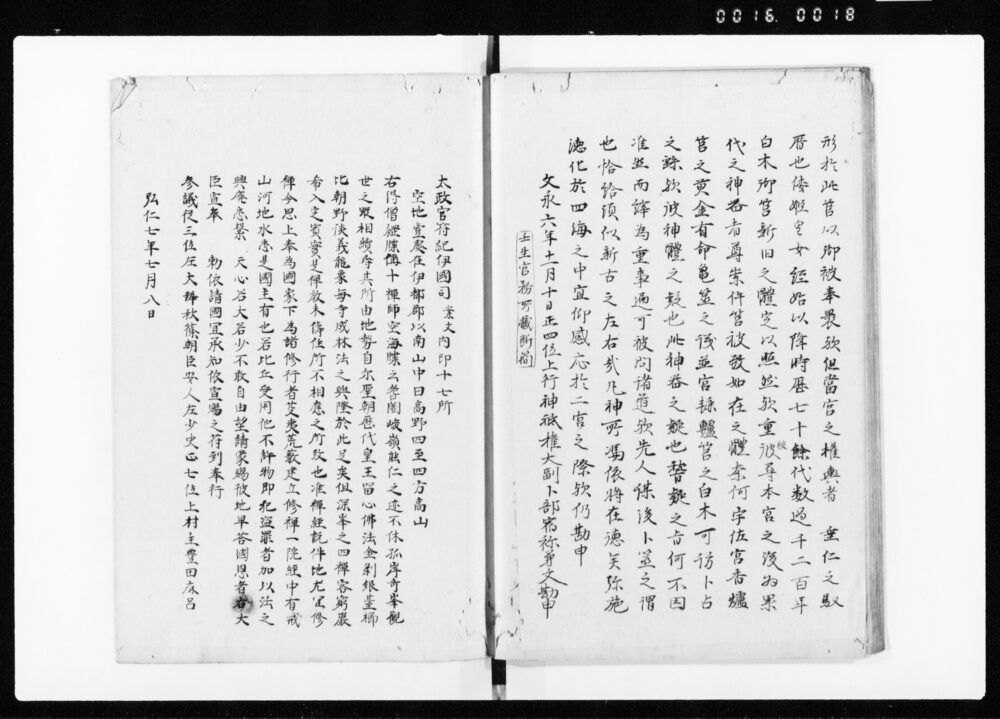 0016. 0018
形於此筥以御被奉褁欤但當宮之權輿者 垂仁之馭
暦也倭姫皇女経始以降時暦七十餘代数過千二百年
白木御筥新旧之體定以照然欤重彼尊本宮之後為累
代之神器者尊崇件筥被敬如在之體奈何宇佐宮香爐
筥之黄金有命亀筮之儀並宮 筥之白木可訪卜占
之 欤彼神體之疑也此神器之疑也 疑之者何不因
准然而 為重事遍可被問諸道欤先人 後卜筮之謂
也恰給須似新古之左右哉凡神所馮依将在徳矣弥施
徳化於四海之中宜仰感応於二宮之際欤仍勘申
文永六年十一月十日正四位上行神祇権大副卜部宿祢尊文勘申
壬生官務所蔵断簡
太政官符紀伊國司 案文内印十七所
空地壹處在伊都郡以南山中曰高野四至四方高山
右得僧綱牒偁十禅師空海牒云善聞峻嶺能仁之迹不休孤岸奇峯観
世之蹤相續尋其所由地勢自尓聖朝歴代皇王留心佛法金刹銀䑓櫛
比朝野談義龍象毎寺成林法之興隆於此足矣但深峯之四禅客窮巌
希入定賓實是禅教未傳住所不相應之所致也准禅経説件地尤冝修
禅今思上奉為國家下為諸修行者芟夷荒薮建立修禅一院経中有戒
山河地水悉是國主有也若比丘受用他不許物即犯盗罪者加以法之
興廃悉繋 天心若大若少不敢自由望請蒙賜彼地早荅國恩者右大
臣宣奉 勅依請國冝承知依宣賜之符到奉行
参議従三位左大辨秋篠朝臣安人左少史正七位上村主豊田麻呂
弘仁七年七月八日